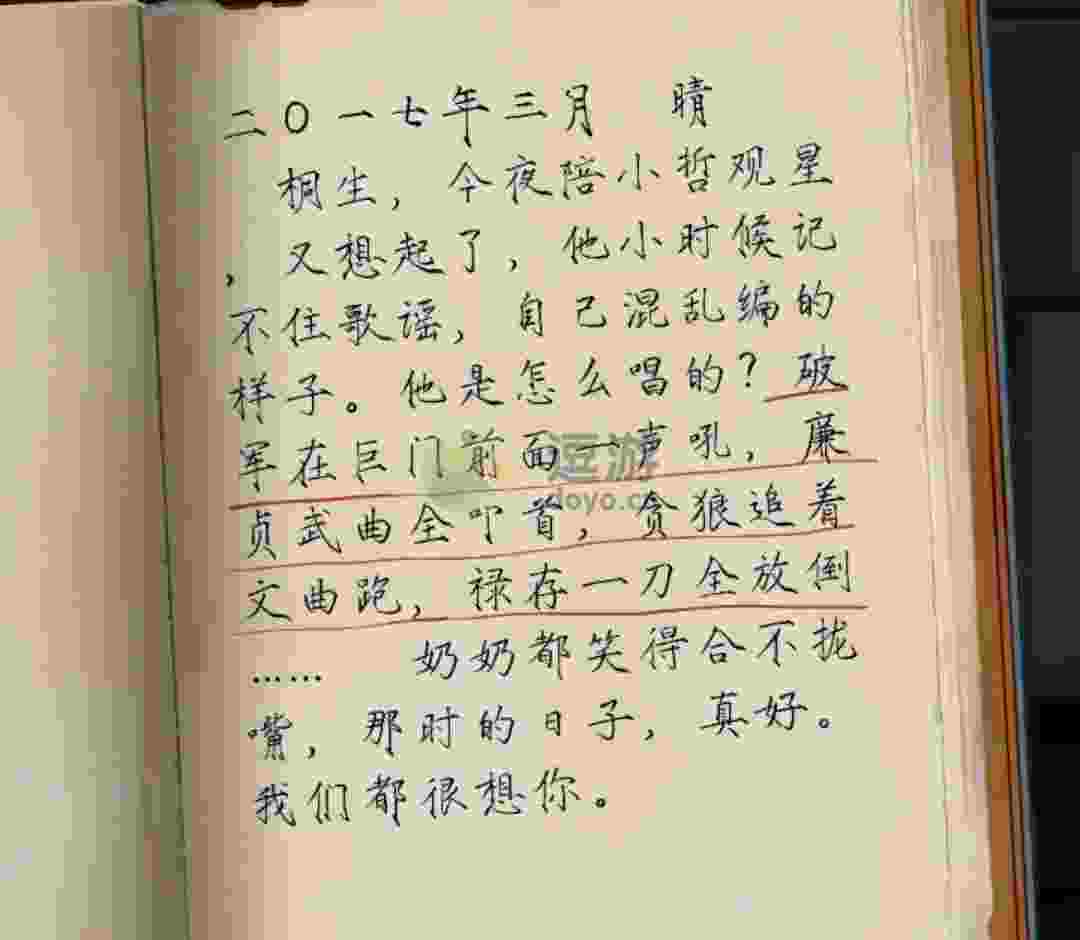 二〇一七年三月 晴
桐生，今夜陪小哲观星
，又想起了，他小时候记
不住歌谣，自己混乱编的
样子。他是怎么唱的？破
军在巨门前面一声吼，廉
贞武曲全叩首，贪狼追着
文曲跑，禄存一刀全放倒
…… 奶奶都笑得合不拢
嘴，那时的日子，真好。
我们都很想你。
逗游
doyo.c